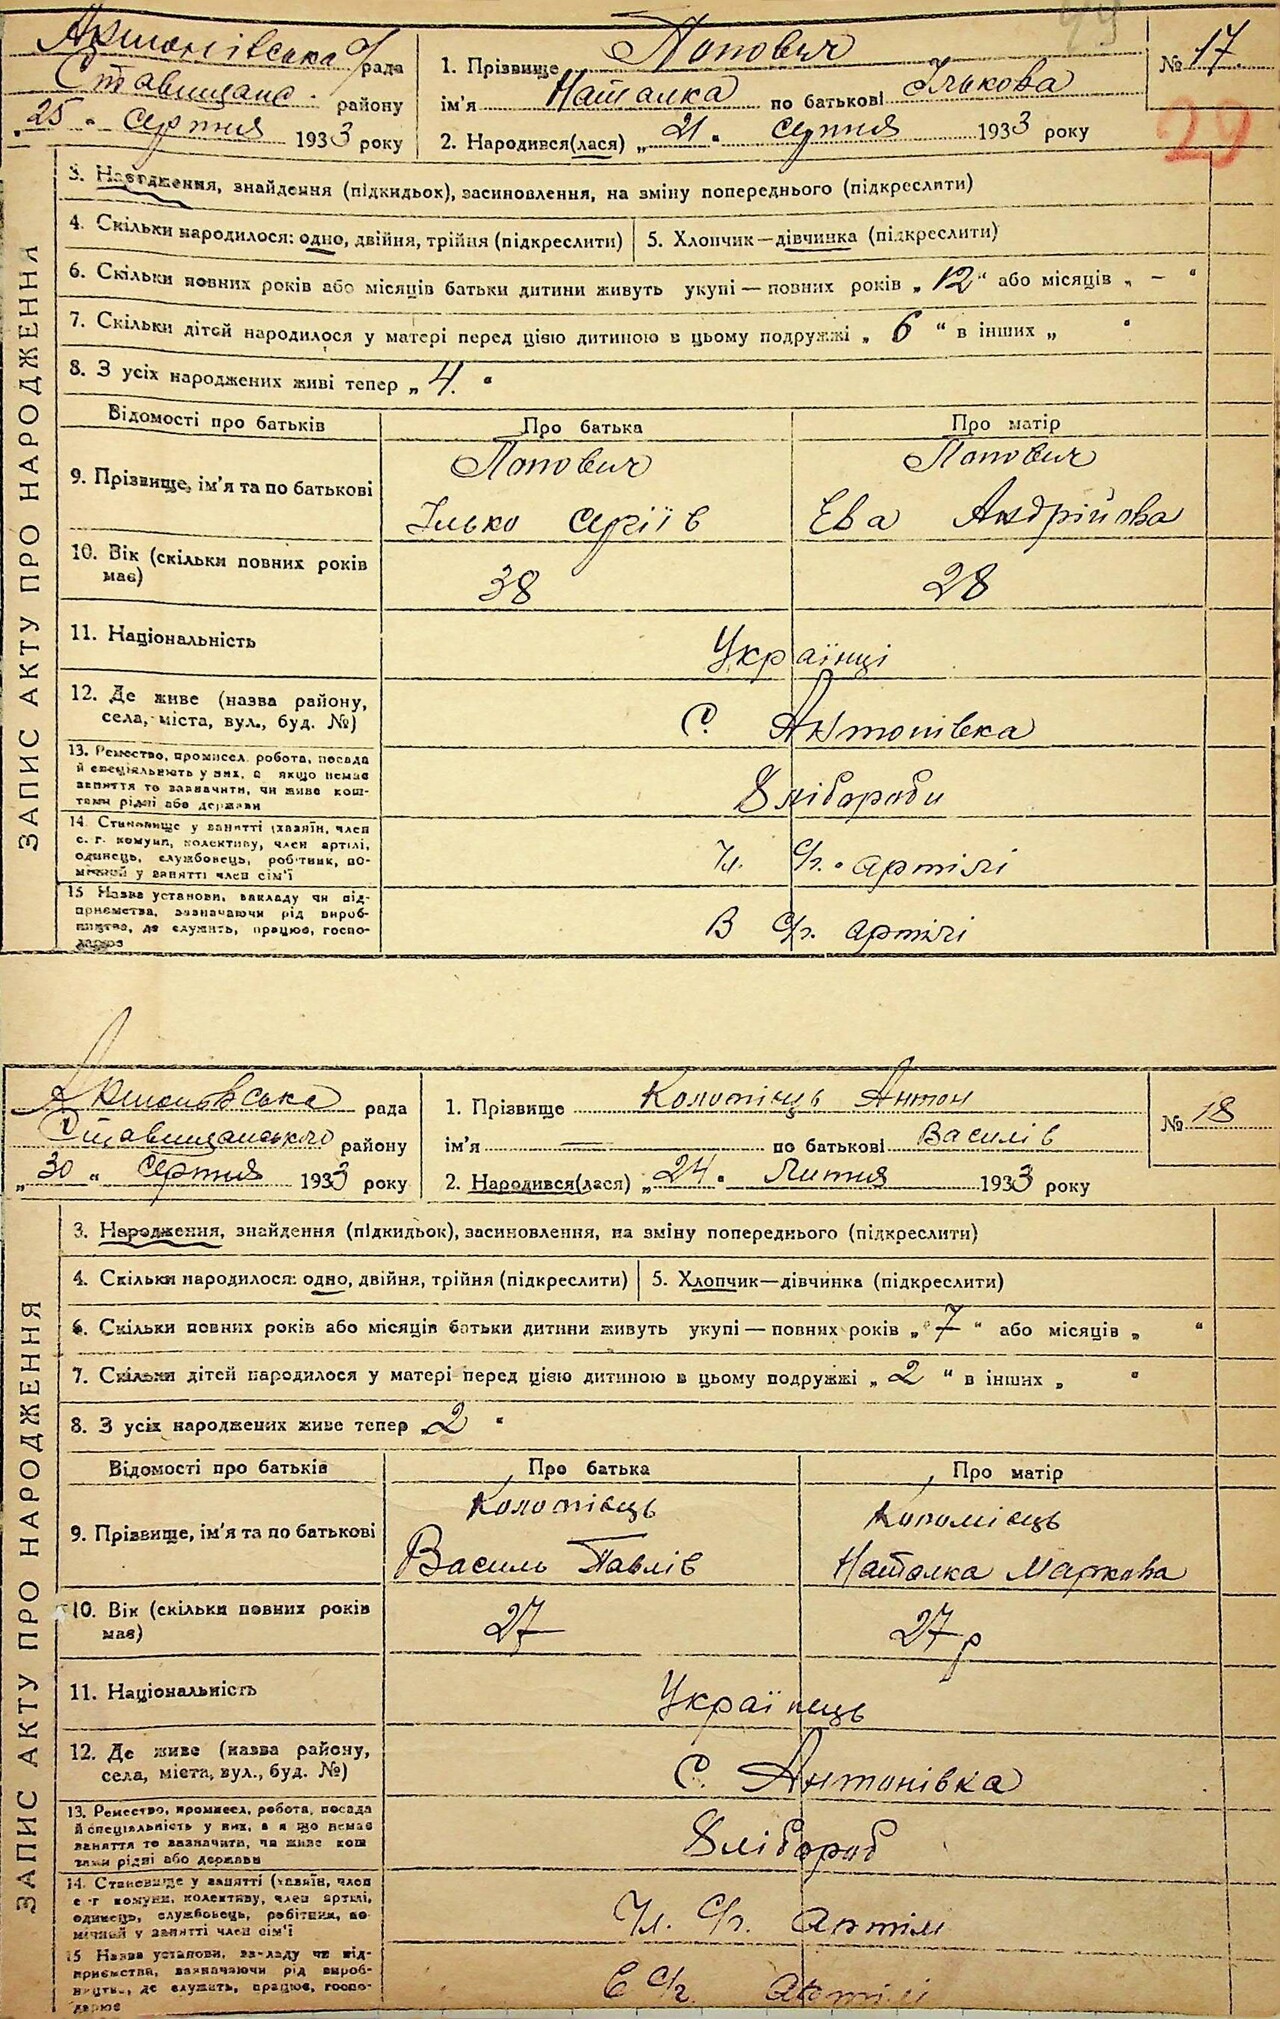 Антонівська с/рада
Ставищанс. району
"25" серпня 1933 року
1. Прізвище Попович
ім'я Наталка по батькові Ількова
2. Народився(лася) "21" серпня 1933 року
№ 17.
29
ЗАПИС АКТУ ПРО НАРОДЖЕННЯ
3. Народження, знайдення (підкидьок), засиновлення, на зміну попереднього (підкреслити)
4. Скільки народилося: одно, двійня, трійня (підкреслити) 5. Хлопчик—дівчинка (підкреслити)
6. Скільки повних років або місяців батьки дитини живуть укупі — повних років „12" або місяців „ – "
7. Скільки дітей народилося у матері перед цією дитиною в цьому подружжі „ 6 " в інших „ "
8. З усіх народжених живі тепер „4. "
Відомості про батьків Про батька Про матір
9. Прізвище, ім'я та по батькові
Попович Попович
Ілько Сергіїв Ева Андрійова
10. Вік (скільки повних років має)
38 28
11. Національність Українці
12. Де живе (назва району,
села, міста, вул., буд. №) С. Антонівка
13. Ремество, промисел, робота, посада
й спеціяльність у них, а якщо немає
заняття то зазначити, чи живе кош-
тами рідні або держави
Хлібороби
14. Становище у занятті (хазяїн, член
с. г. комуни, колективу, член артілі,
одинець, службовець, робітник, по-
мічний у занятті член сім'ї
Чл. С/г. артілі
15 Назва установи, закладу чи під-
приємства, зазначаючи рід вироб-
ництва, де служить, працює, госпо-
дарює
В С/г. артілі
Антоновська рада
Ставищанського району
„30" серпня 1933 року
1. Прізвище Коломієць Антон
ім'я по батькові Василів
2. Народився(лася) „24" Липня 1933 року
№ 18
ЗАПИС АКТУ ПРО НАРОДЖЕННЯ
3. Народження, знайдення (підкидьок), засиновлення, на зміну попереднього (підкреслити)
4. Скільки народилося: одно, двійня, трійня (підкреслити) 5. Хлопчик—дівчинка (підкреслити)
6. Скільки повних років або місяців батьки дитини живуть укупі — повних років „ 7 " або місяців „ "
7. Скільки дітей народилося у матері перед цією дитиною в цьому подружжі „ 2 " в інших „ "
8. З усіх народжених живе тепер „2 "
Відомості про батьків Про батька Про матір
9. Прізвище, ім'я та по батькові
Коломієць Коломієць
Василь Павлів Наталка Маркова
10. Вік (скільки повних років має)
27 27 р
11. Національність Українець
12. Де живе (назва району,
села, міста, вул., буд. №) С. Антонівка
13. Ремество, промисел, робота, посада
й спеціяльність у них, а якщо немає
заняття то зазначити, чи живе кош
тами рідні або держави
Хлібороб
14. Становище у занятті (хазяїн, член
с-г комуни, колективу, член артілі,
одинець, службовець, робітник, по-
мічний у занятті член сім'ї
Чл. С/г. Артілі
15 Назва установи, закладу чи під-
приємства, зазначаючи рід вироб-
ництв., де служить, працює, госпо-
дарює
В С/г. Артілі